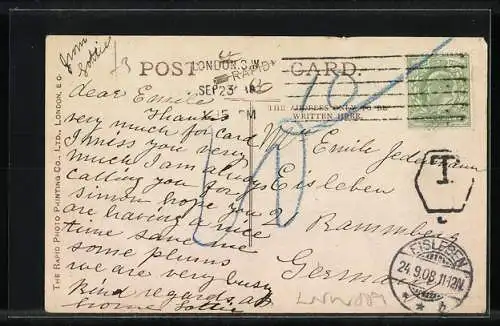 from
Lottie
POST CARD.
LONDON. S.W.
SEP 23
RAPID
PM
THE ADDRESS ONLY TO BE
WRITTEN HERE.
THE RAPID PHOTO PRINTING CO., LTD., LONDON, E.C.
dear Emile
Thanks
very much for card
I miss you very
much I am always
calling for
simon hope you 2
are having a nice
time save me
some plums
we are very busy
Kind regards
home Lottie
Emile
Eisleben
Rammberg
Germany
T
EISLEBEN
24.9.08.11-12N.